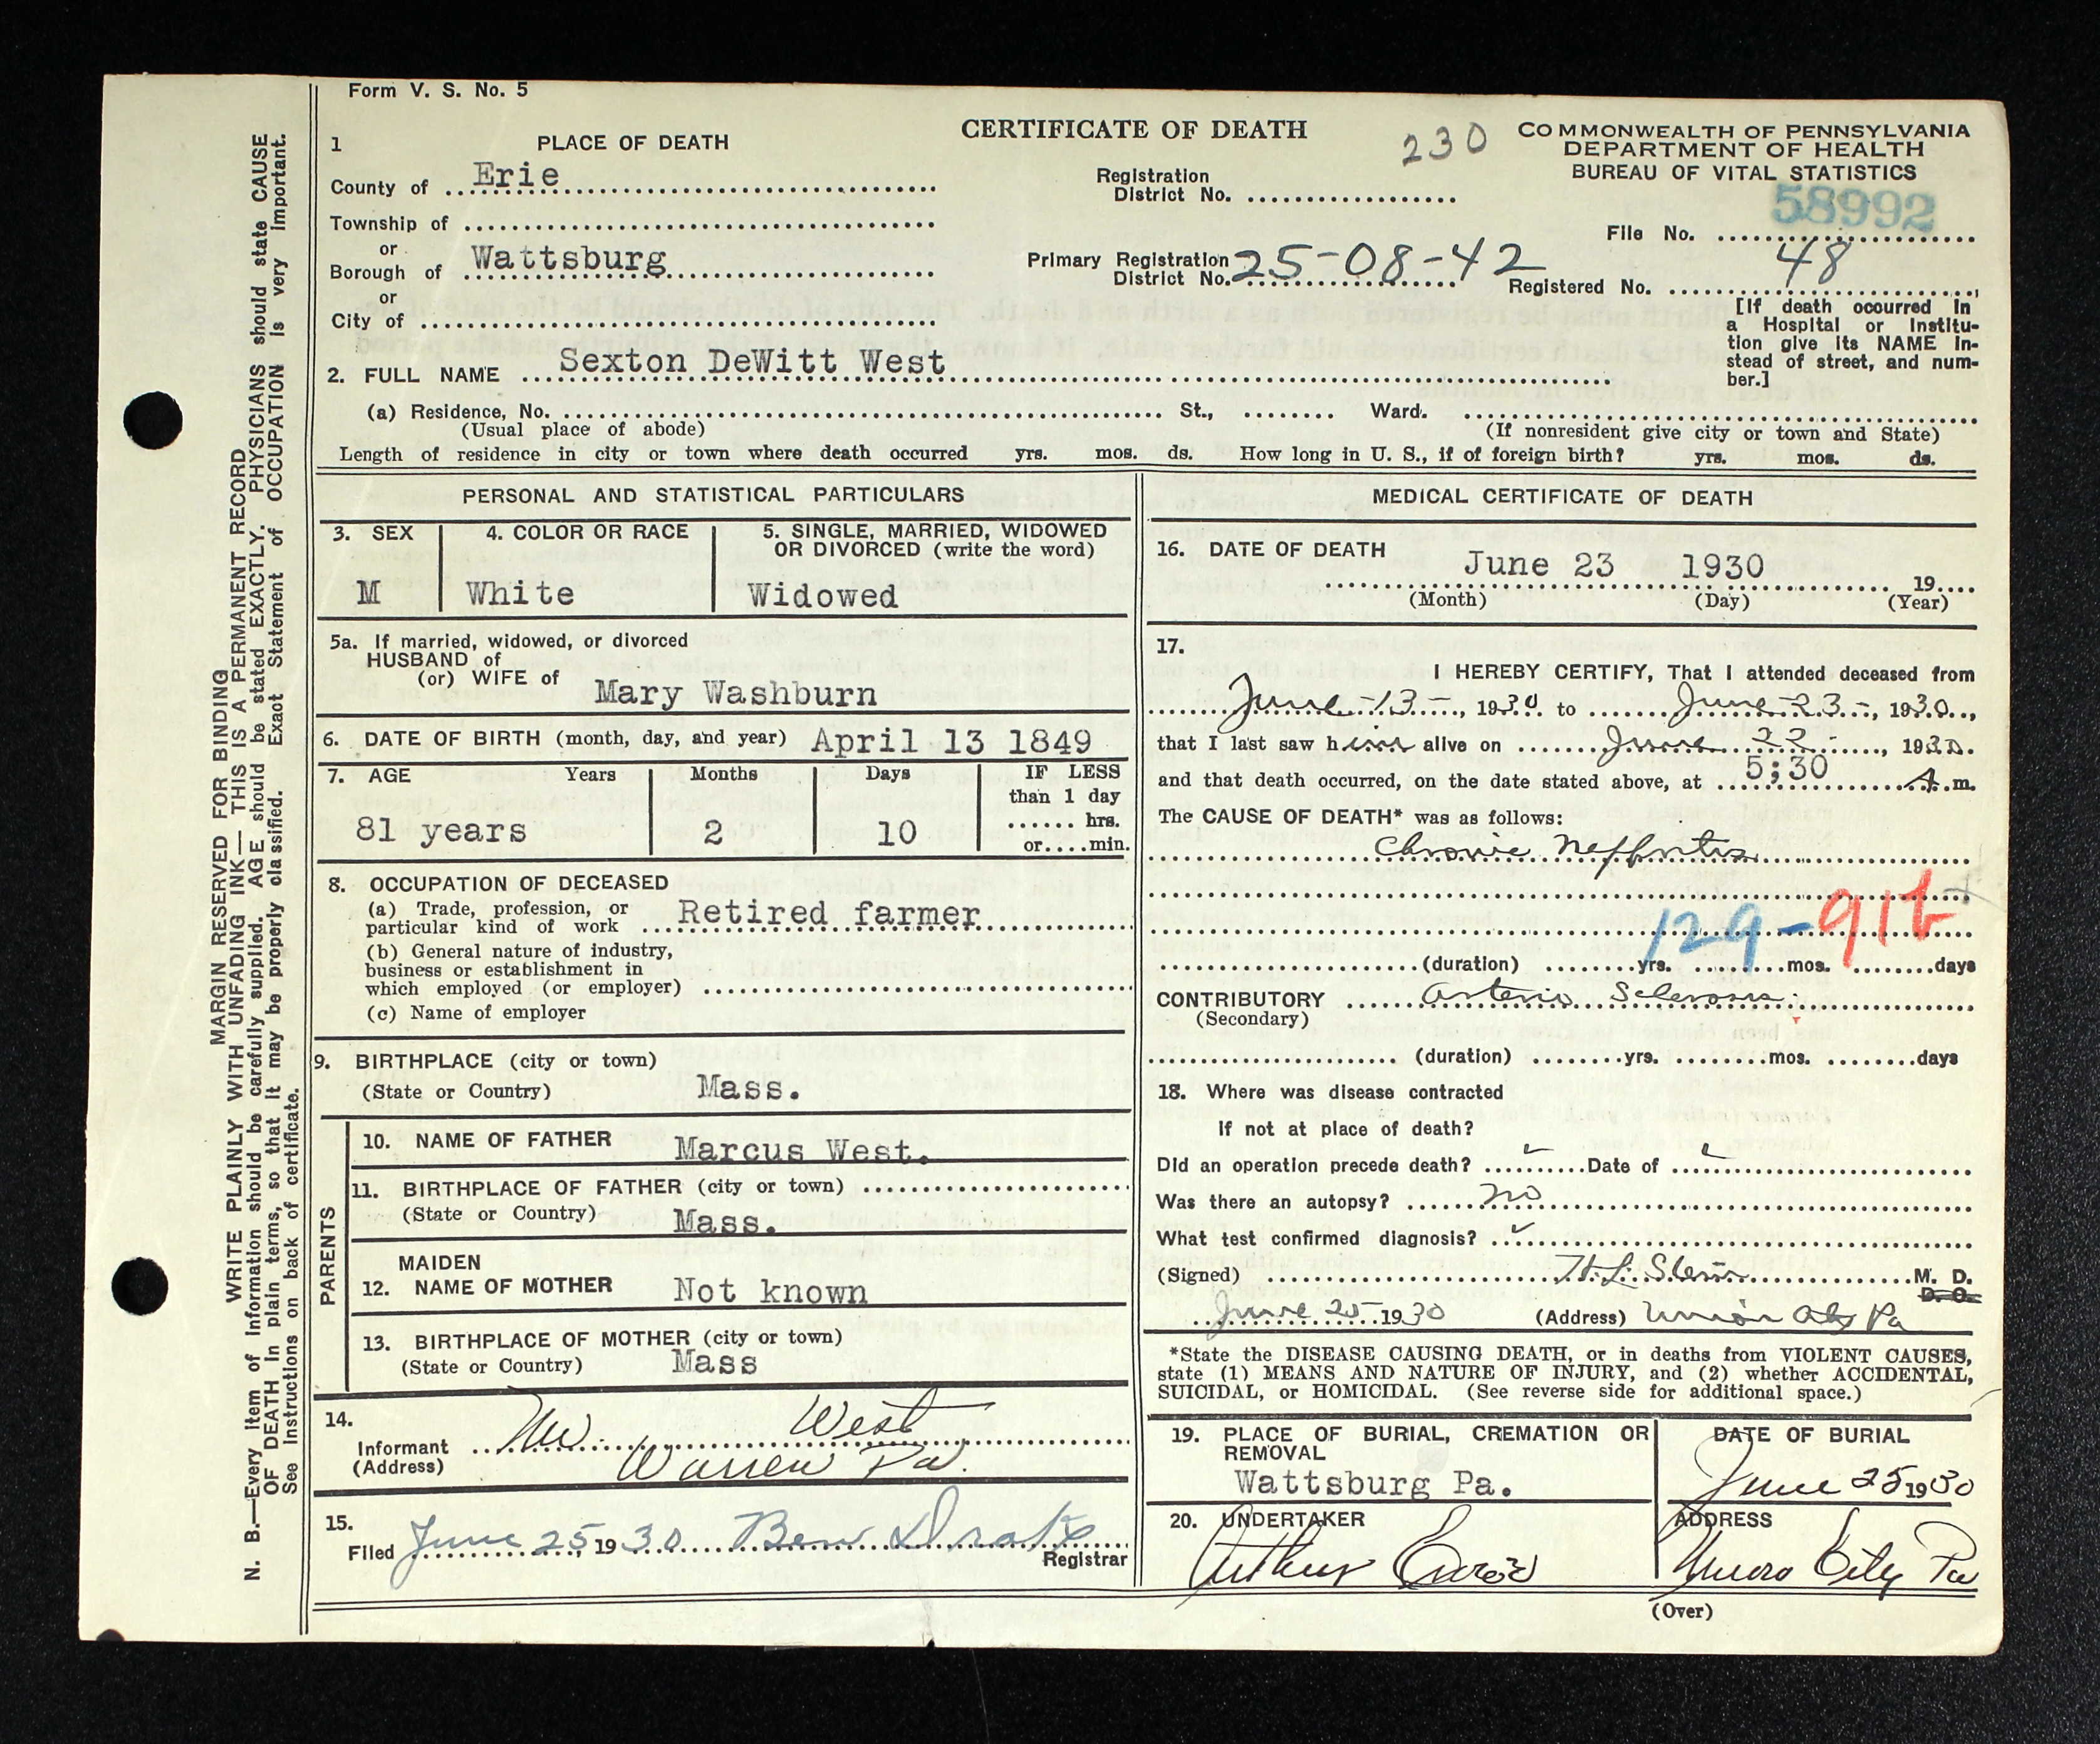 Form V. S. No. 5
CERTIFICATE OF DEATH
230
COMMONWEALTH OF PENNSYLVANIA
DEPARTMENT OF HEALTH
BUREAU OF VITAL STATISTICS
58992
File No.
1 PLACE OF DEATH
County of Erie
Registration District No.
Township of
or
Borough of Wattsburg
Primary Registration District No. 25-08-42
Registered No. 48
or
City of
[If death occurred in
a Hospital or Institu-
tion give its NAME in-
stead of street, and num-
ber.]
2. FULL NAME Sexton DeWitt West
(a) Residence, No. St., Ward.
(Usual place of abode) (If nonresident give city or town and State)
Length of residence in city or town where death occurred yrs. mos. ds. How long in U. S., if of foreign birth? yrs. mos. ds.
PERSONAL AND STATISTICAL PARTICULARS
3. SEX
M
4. COLOR OR RACE
White
5. SINGLE, MARRIED, WIDOWED
OR DIVORCED (write the word)
Widowed
5a. If married, widowed, or divorced
HUSBAND of
(or) WIFE of Mary Washburn
6. DATE OF BIRTH (month, day, and year) April 13 1849
7. AGE Years Months Days IF LESS
than 1 day
hrs.
or min.
81 years 2 10
8. OCCUPATION OF DECEASED
(a) Trade, profession, or
particular kind of work Retired farmer
(b) General nature of industry,
business or establishment in
which employed (or employer)
(c) Name of employer
9. BIRTHPLACE (city or town)
(State or Country) Mass.
PARENTS
10. NAME OF FATHER Marcus West.
11. BIRTHPLACE OF FATHER (city or town)
(State or Country) Mass.
MAIDEN
12. NAME OF MOTHER Not known
13. BIRTHPLACE OF MOTHER (city or town)
(State or Country) Mass
14.
Informant West
(Address) Warren Pa.
15.
Filed June 25, 1930 Ben Drake
Registrar
MEDICAL CERTIFICATE OF DEATH
16. DATE OF DEATH June 23 1930 19
(Month) (Day) (Year)
17.
I HEREBY CERTIFY, That I attended deceased from
June 13, 1930 to June 23, 1930,
that I last saw him alive on June 22, 1930.
and that death occurred, on the date stated above, at 5;30 A. m.
The CAUSE OF DEATH* was as follows:
Chronic Neffritis
129-91b
(duration) yrs. mos. days
CONTRIBUTORY Arterio Sclerosis
(Secondary)
(duration) yrs. mos. days
18. Where was disease contracted
If not at place of death?
Did an operation precede death? Date of
Was there an autopsy? no
What test confirmed diagnosis?
(Signed) H. L. M. D.
D. O.
June 25 1930 (Address) Union City Pa
*State the DISEASE CAUSING DEATH, or in deaths from VIOLENT CAUSES,
state (1) MEANS AND NATURE OF INJURY, and (2) whether ACCIDENTAL,
SUICIDAL, or HOMICIDAL. (See reverse side for additional space.)
19. PLACE OF BURIAL, CREMATION OR
REMOVAL
Wattsburg Pa.
DATE OF BURIAL
June 25 1930
20. UNDERTAKER
Arthur
ADDRESS
Union City Pa
(Over)
MARGIN RESERVED FOR BINDING
WRITE PLAINLY WITH UNFADING INK—THIS IS A PERMANENT RECORD
N. B.—Every item of information should be carefully supplied. AGE should be stated EXACTLY. PHYSICIANS should state CAUSE
OF DEATH in plain terms, so that it may be properly classified. Exact Statement of OCCUPATION is very important.
See instructions on back of certificate.